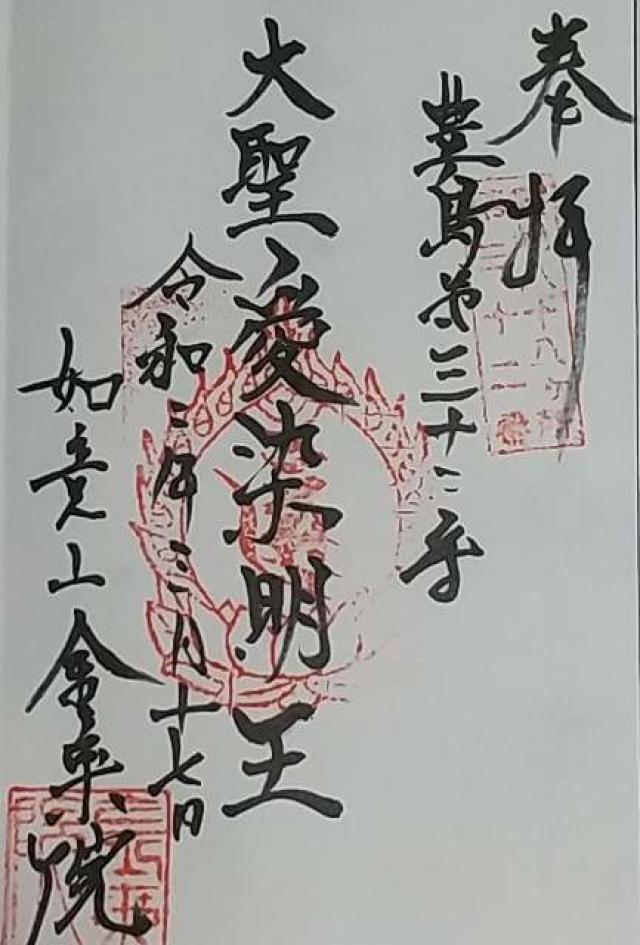 奉拝
豊島第三十二番
大聖愛染明王
令和二年三月十七日
如意山金乗院